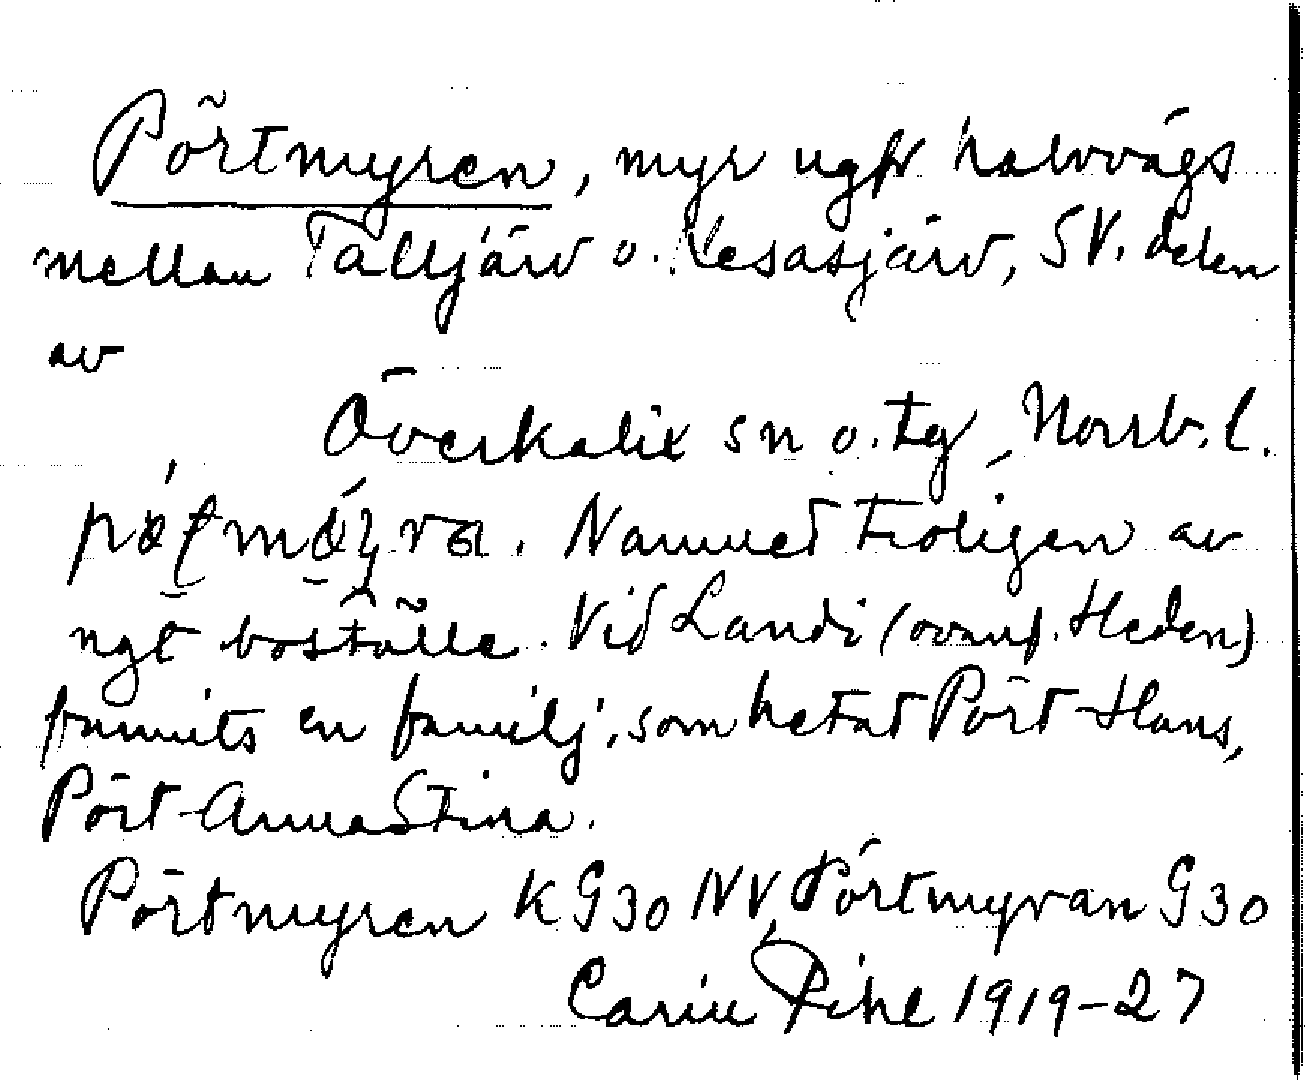 Pörtmyren, myr ugfr halvvägs
mellan Talljärv o. Lesasjärv, SV. delen
av
Överkalix sn o. tg, Norrb. l.
Namnet troligen av
ngt boställe. Vid Landi (ovanf. Heden)
funnits en familj, som hetat Pört-Hans,
Pört-AnnaStina.
Pörtmyren K G30 NV, Pörtmyran G30
Carin Pihl 1919-27